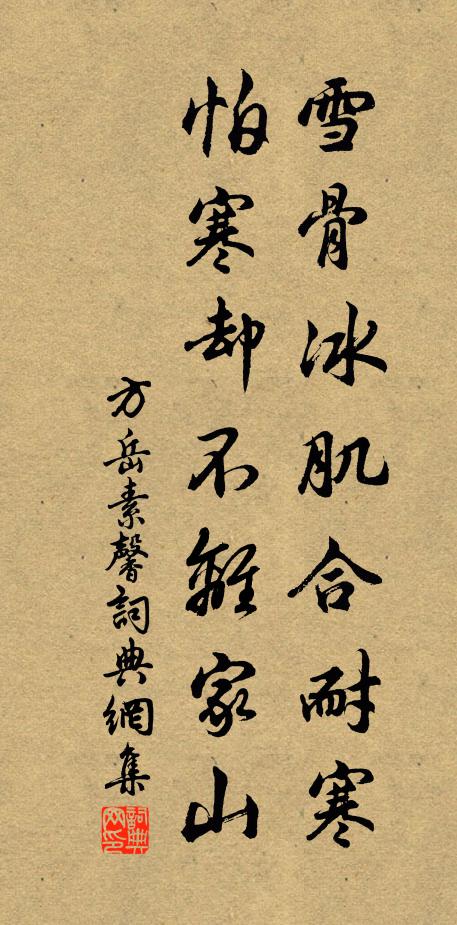 雪骨冰肌合耐寒
怕寒却不離家山
方岳素馨詞典網集
詞典網印